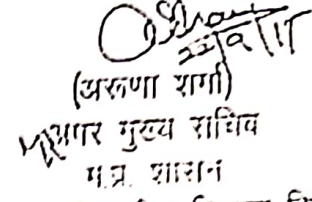 22/9/15
(अरूणा शर्मा)
अपर मुख्य सचिव
म.प्र. शासन